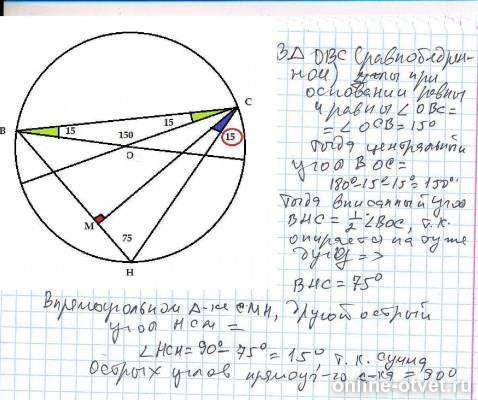 C
B
15
15
150
O
15
M
75
H
В Δ OBC (равнобедрен-
ном) углы при
основании равны
и равны ∠OBC=
=∠OCB=15°
Тогда центральный
угол BOC=
180°-15°-15°=150°
Тогда вписанный угол
BHC=½∠BOC, т.к.
опирается на ту же
дугу =>
BHC=75°
В прямоугольном Δ-ке CMH, другой острый
угол HCM =
∠HCM=90°-75°=15°, т.к. сумма
острых углов прямоуг-го Δ-ка = 90°
online-otvet.ru